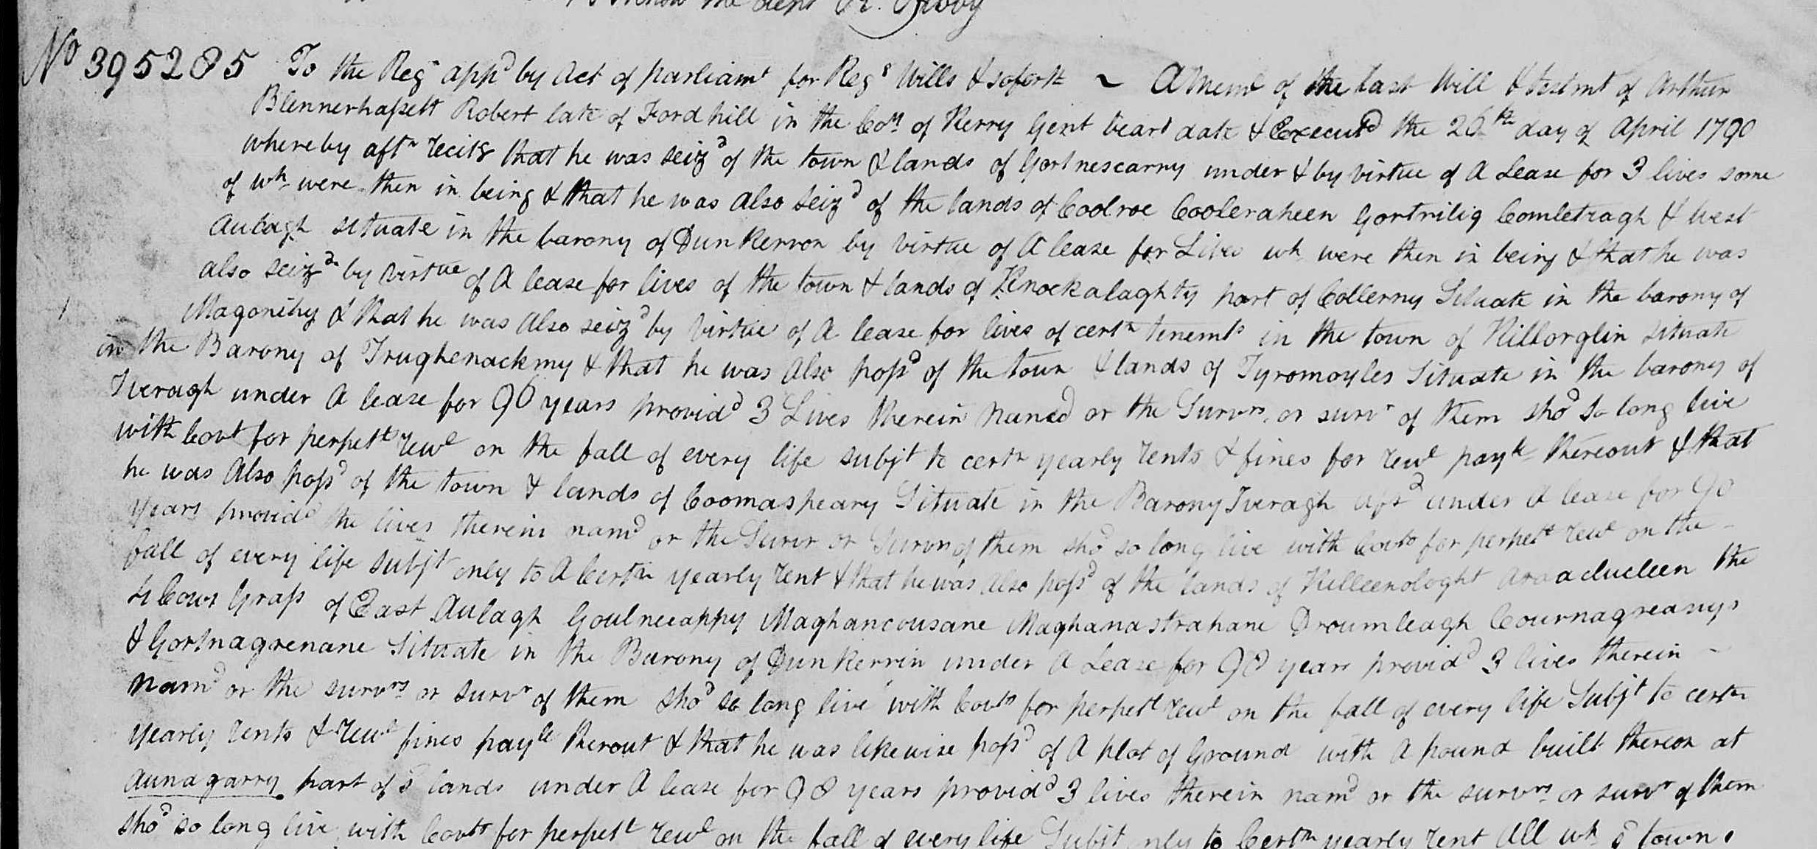 No 395285 To the Regr appd by Act of parliamt for Regg Wills & soforth ~ A Meml of the last Will & testmt of Arthur
Blennerhassett Robert late of Ford hill in the Coy of Kerry Gent beard date & Execut'd the 26th day of April 1790
whereby aftr recitg that he was seiz'd of the town & lands of Gortnescarny under & by virtue of A Lease for 3 lives some
of wh were then in being & that he was also seiz'd of the lands of Coolroe Cooleraheen Gortrilig Comletragh & West
Aulagh situate in the barony of Dunkerron by virtue of A lease for Lives wh were then in being & that he was
also seiz'd by virtue of A lease for lives of the town & lands of Knockalaghty part of Collerny Situate in the barony of
Magonihy & that he was Also seiz'd by virtue of A lease for lives of certn tenemts in the town of Killorglin situate
in the Barony of Trughenackmy & that he was Also poss'd of the town & lands of Tyromoyles Situate in the barony of
Iveragh under A lease for 90 years provid'd 3 Lives therein Named or the Survrs or survr of them sho'd so long live
with Covt for perpetl rewl on the fall of every life subjt to certn yearly rents & fines for rewl payle thereout & that
he was Also poss'd of the town & lands of Coomaspeary Situate in the Barony Iveragh afs'd under A lease for 90
years provid'd the lives therein nam'd or the Survr or Survrs of them sho'd so long live with Covts for perpetl rewl on the
fall of every life subjt only to A Certn yearly rent & that he was also poss'd of the lands of Killeenologht the
4 Cows Grass of East Aulagh Goulneeappy Maghancousane Maghanastrahane Droumleagh Cournagreanys
& Gortnagrenane Situate in the Barony of Dunkerrin under A Lease for 98 years provid'd 3 lives therein
nam'd or the survrs or survr of them sho'd so long live with Covts for perpetl rewl on the fall of every life Subjt to certn
yearly rents & rewl fines payle therout & that he was likewise poss'd of A plot of Ground with A pound built thereon at
Aunagarry part of sd lands under A lease for 98 years provid'd 3 lives therein nam'd or the survrs or survr of them
sho'd so long live with Covts for perpetl rewl on the fall of every life Subjt only to Certn yearly rent All wh sd towns